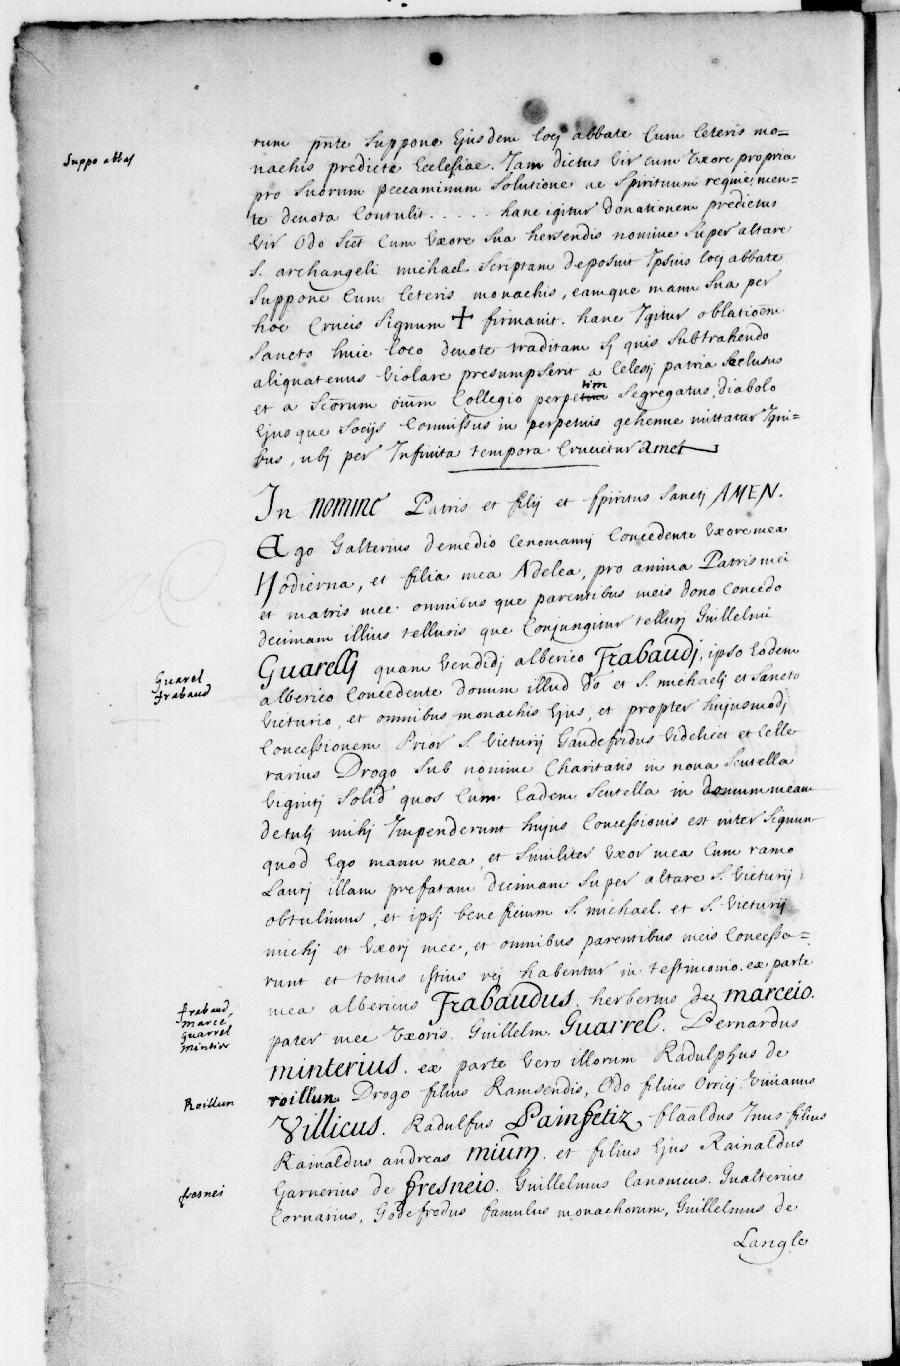 Suppo abbas
rum pñte Suppono Ejusdem locj abbate Cum Ceteris mo=
nachis predicte Ecclesiae. Jam dictus vir cum Vxore propria
pro Suorum peccaminum Solutione ac Spirituum requie, men=
te deuota Contulit ..... hanc igitur donationem predictus
Vir Odo Scet Cum Vxore Sua hersendis nomine Super altare
S. archangeli michael Scriptam deposuit Ipsius locj abbate
Suppone Cum Ceteris monachis, eamque manu Sua per
hoc Crucis Signum + firmauit. hanc Igitur oblatioem
Sancto huic loco deuote traditam Sj quis Subtrahendo
aliquatenus Violare presumpserit a Celestj patria Seclusus
et a Sctorum oium Collegio perpetim Segregatus, diabolo
Ejusque Socijs Commissus in perpetuis gehenne mittatur Igni=
bus, ubj per Infinita tempora Crucietur amet
In nomine Patris et filij et spiritus Sanctj AMEN.
Ego Galterius demedio Cenomannj Concedente Vxore mea
Hodierna, et filia mea Adelea, pro anima Patris mei
et matris mee omnibus que parentibus meis dono Concedo
decimam illius telluris que Conjungitur tellurj Guillelmi
Guarel
frabaud
Guarellj quam Vendidj alberico Frabaudj, ipso Eodem
alberico Concedente donum illud do et S. michaelj et Sancto
Victurio, et omnibus monachis Ejus, et propter hujusmodj
Concessionem Prior S. Victurij Gaudefridus Videlicet et Celle
rarius Drogo Sub nomine Charitatis in noua Scutella
Vigintj Solid quos Cum Eadem Scutella in domum meam
detulj mihj Impenderunt hujus Concessionis est inter Signum
quod Ego manu mea, et Similiter Vxor mea Cum ramo
Laurj illam prefatam decimam Super altare S. Victurij
obtulimus, et ipsj beneficium S. michael. et S. Victurij
michj et Vxorj mee, et omnibus parentibus meis Concesse=
runt et totius istius rej habentur in testimonio. ex parte
frabaud,
marcé
guarrel
mintier
mea albericus Frabaudus. herbertus de marceio.
pater mee Vxoris. Guillelm. Guarrel. Bernardus
minterius. ex parte Vero illorum Radulphus de
Roillun
roillun Drogo filius Ramsendis, Odo filius Orricj. Viuianus
Villicus. Radulfus Painfetiz, flaaldus Inus filius
Rainaldus andreas mium. et filius Ejus Rainaldus
fresnei
Garnerius de fresneio. Guillelmus Canonicus. Gualterius
Cornarius, Godefredus famulus monachorum, Guillelmus de
Langle